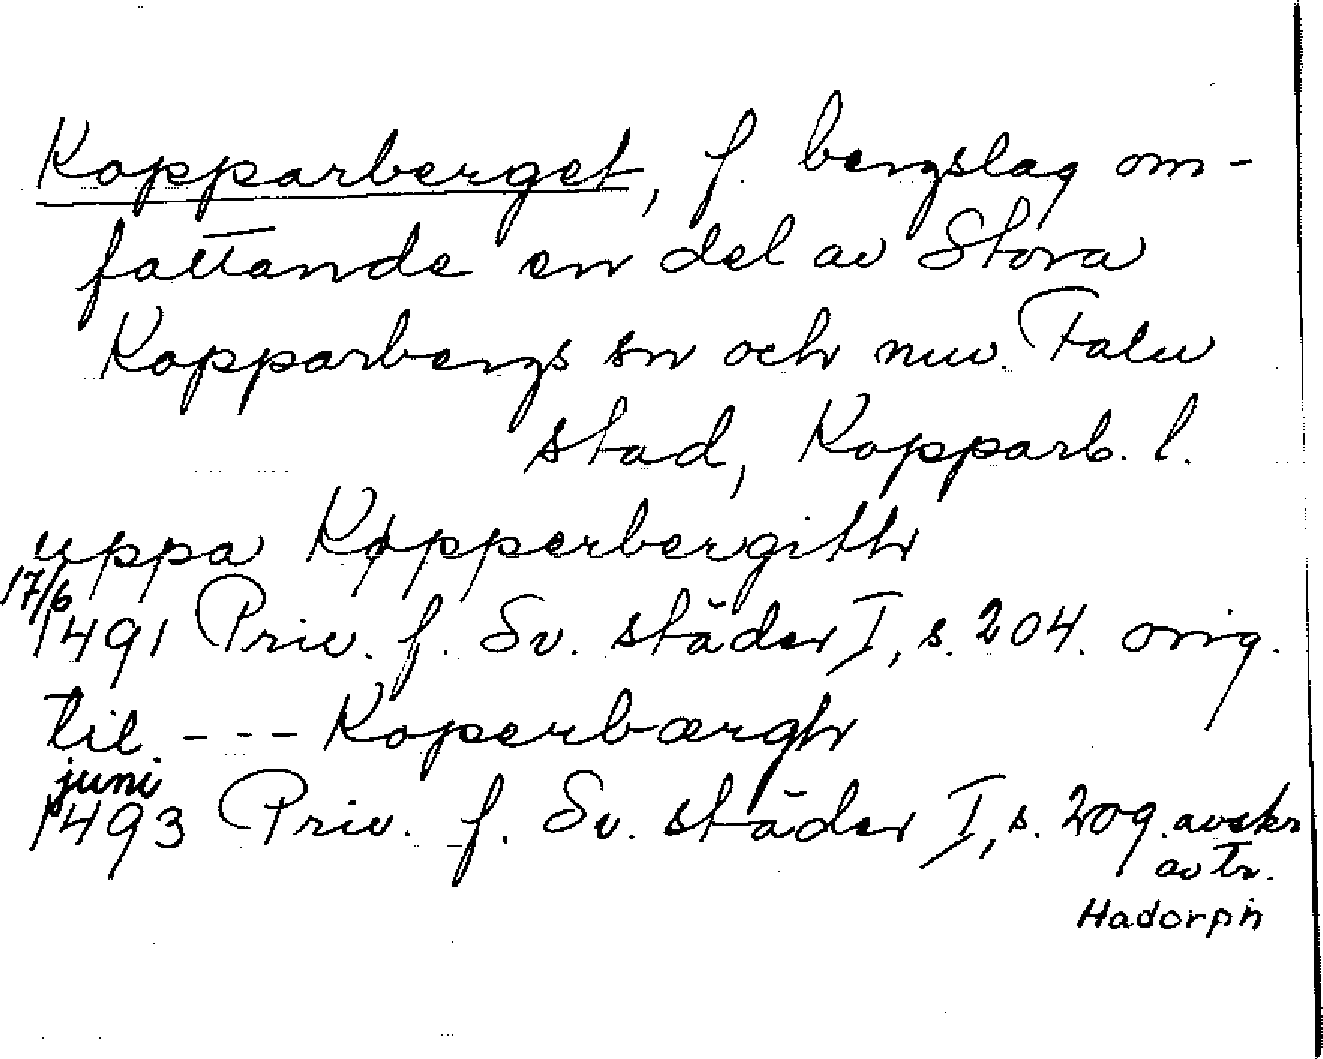 Kopparberget, f. bergslag om-
fattande en del av Stora
Kopparbergs sn och nuv. Falu
stad, Kopparb. l.
uppa Køpperbergith
17/6
1491 Priv. f. Sv. städer I, s. 204. orig.
til --- Koperbærgh
juni
1493 Priv. f. Sv. städer I, s. 209. avskr
av tr.
Hadorph